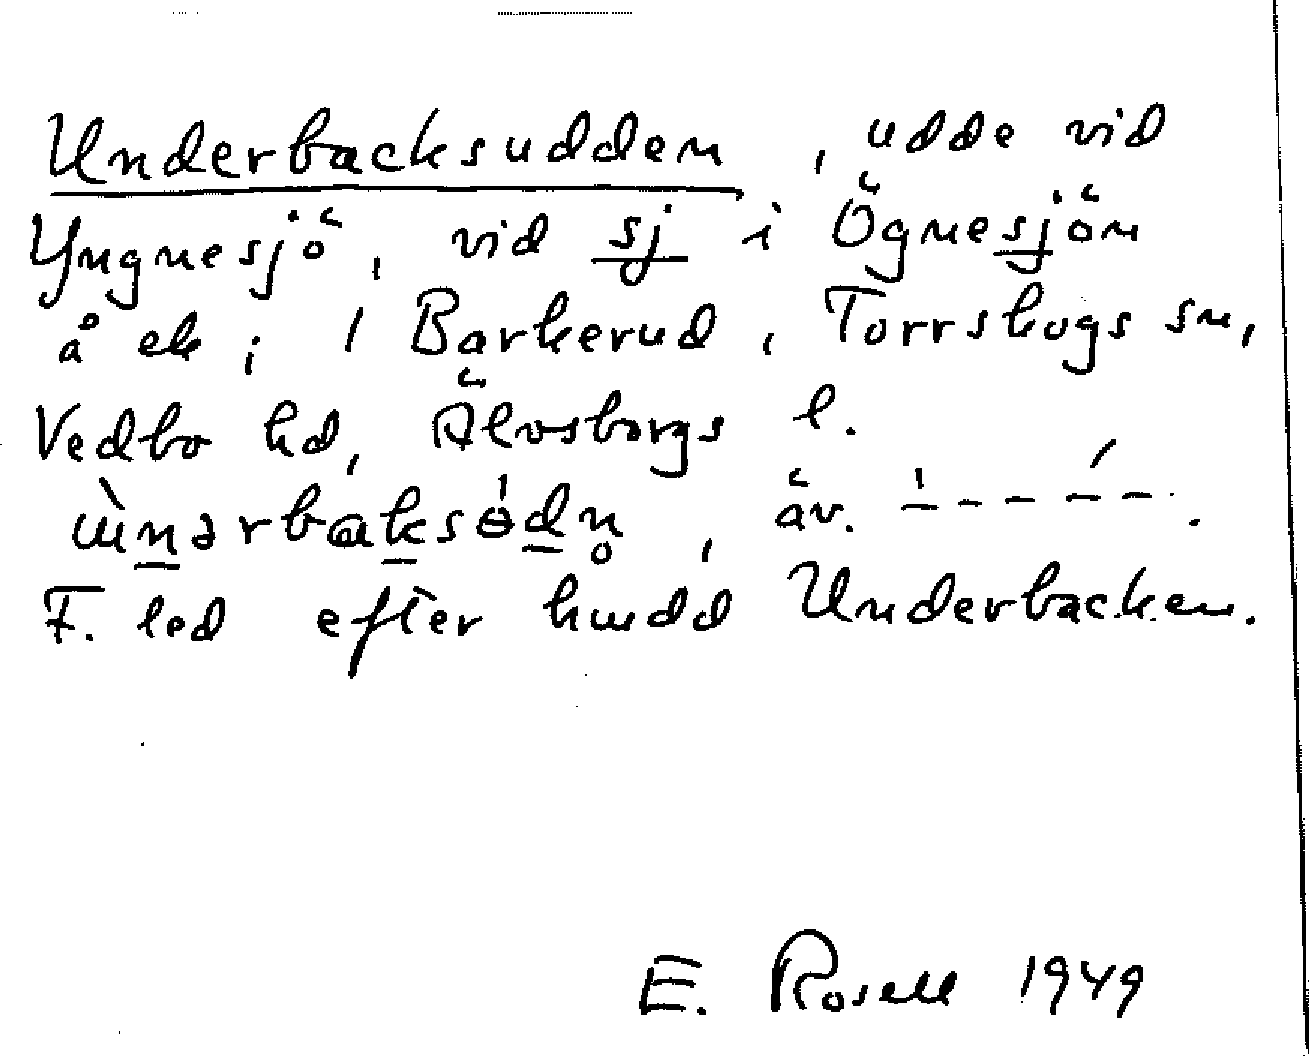 Underbacksudden, udde vid
Yngnesjö, vid sj i Ögnesjön
å ek; 1 Barkerud, Torrskogs sn,
Vedbo hd, Älvsborgs l.
av.
F. led efter hmdd Underbacken.
E. Rosell 1949